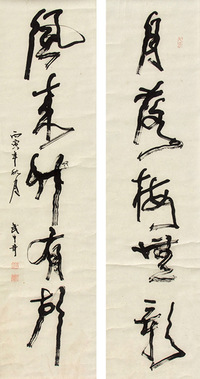 月落梅無影
風來竹有声
丙寅年
月
武中奇